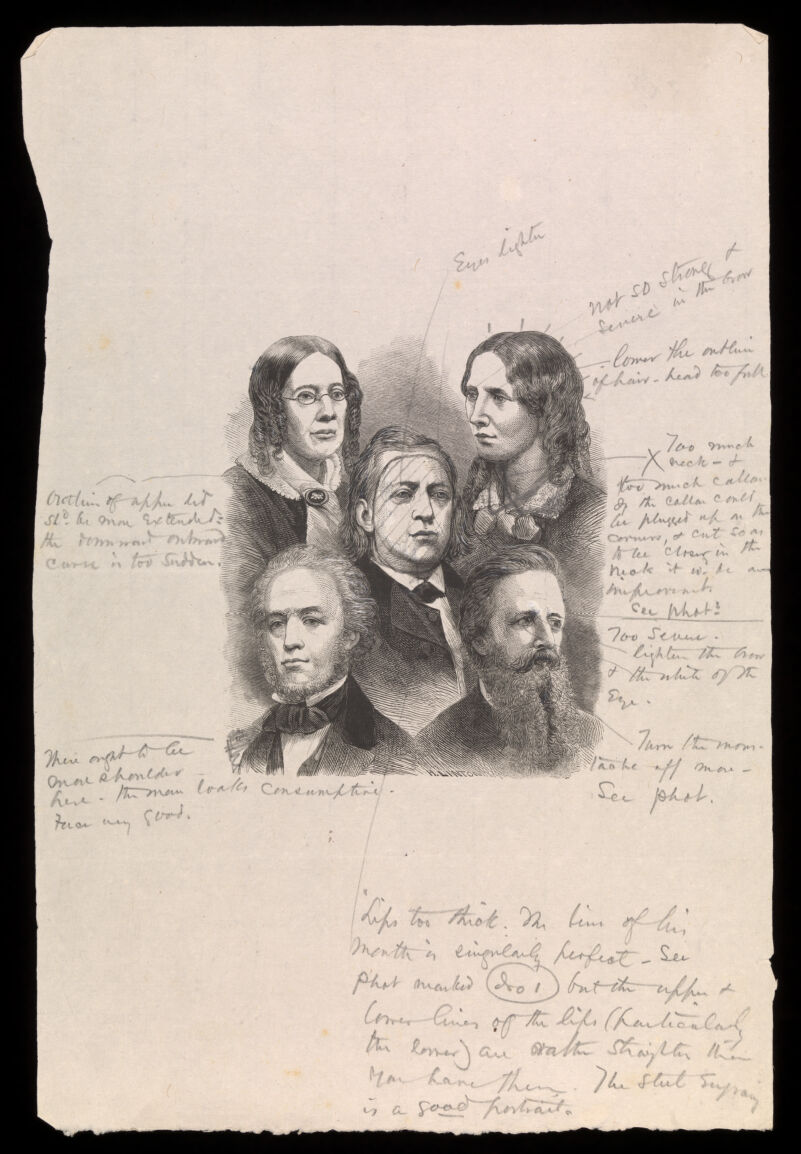 Eyes lighter
Not so strong &
severe in the brow
lower the outline
of hair - head too full
Too much
neck - &
too much collar.
If the collar could
be plugged up on the
corners, & cut so as
to be closer in the
neck it wd be an
improvement.
See phot:
Outline of upper lid
shd. be more extended:
the downward outward
curve is too sudden.
Too severe.
lighten the brow
& the white of the
Eye.
There ought to be
more shoulder
here - the man looks consumptive.
Face very good.
Turn the mous-
tache off more -
See phot.
H. LINTON
Lips too thick. The line of his
mouth is singularly perfect - See
Phot marked No 1 but the upper &
lower lines of the lips (particularly
the lower) are rather straighter than
you have them. The Steel Engraving
is a good portrait.